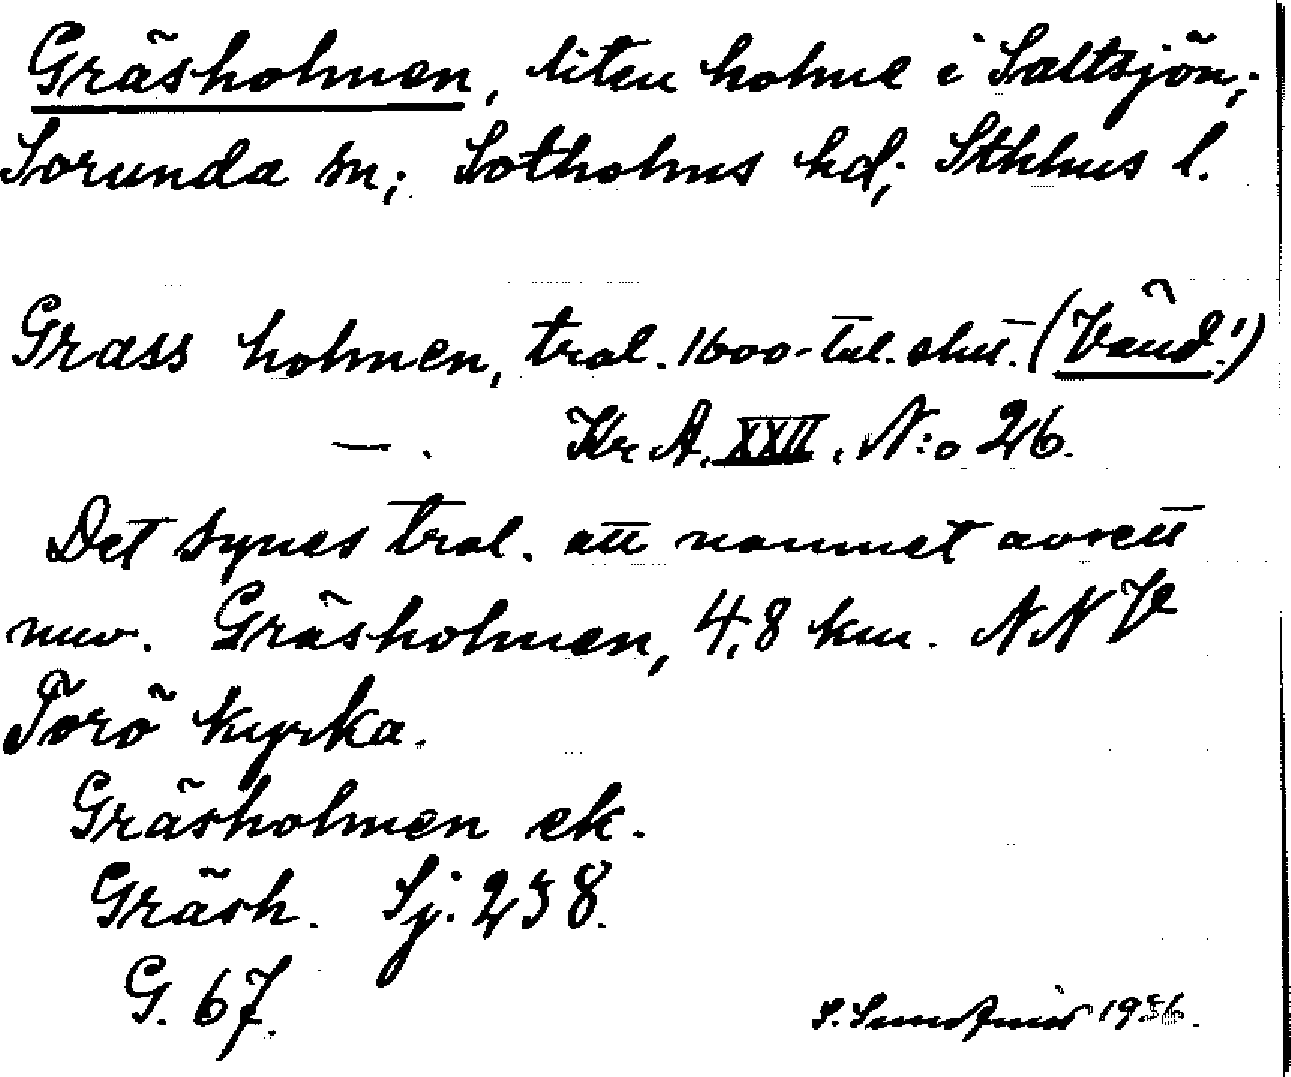 Gräsholmen, liten holme i Saltsjön;
Sorunda sn; Sotholms hd; Sthlms l.
Grass holmen, trol. 1600-tal. slut. (Vänd!)
— . Kr. A. XXII. N:o 26.
Det synes trol. att namnet avsett
nuv. Gräsholmen, 4,8 km. NNV
Torö kyrka.
Gräsholmen ek.
Gräsh. Sj. 238.
G. 67.
S. 1936.